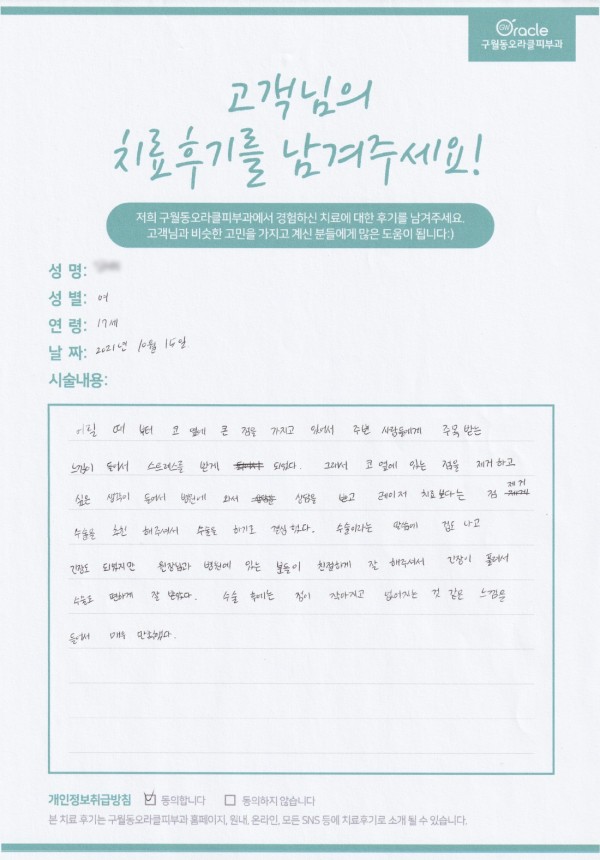 Oracle
구월동오라클피부과
고객님의
치료후기를 남겨주세요!
저희 구월동오라클피부과에서 경험하신 치료에 대한 후기를 남겨주세요.
고객님과 비슷한 고민을 가지고 계신 분들에게 많은 도움이 됩니다:)
성 명:
성 별: 여
연 령: 17세
날 짜: 2021년 10월 16일
시술내용:
어릴 때 부터 코 옆에 큰 점을 가지고 있어서 주변 사람들에게 주목 받는
느낌이 들어서 스트레스를 받게 되었다. 그래서 코 옆에 있는 점을 제거 하고
싶은 생각이 들어서 병원에 와서 상담을 받고 레이저 치료보다는 점 제거
수술을 추천 해주셔서 수술을 하기로 결심 했다. 수술이라는 말씀에 겁도 나고
긴장도 되었지만 원장님과 병원에 있는 분들이 친절하게 잘 해주셔서 긴장이 풀려서
수술도 편하게 잘 받았다. 수술 후에는 점이 작아지고 없어지는 것 같은 느낌을
들어서 매우 만족했다.
개인정보취급방침 ☑ 동의합니다 ☐ 동의하지 않습니다
본 치료 후기는 구월동오라클피부과 홈페이지, 원내, 온라인, 모든 SNS 등에 치료후기로 소개 될 수 있습니다.